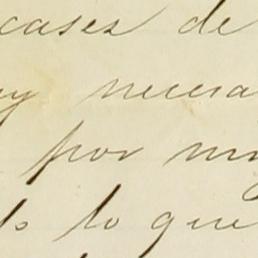 cases de
y necesa
por mu
do lo que